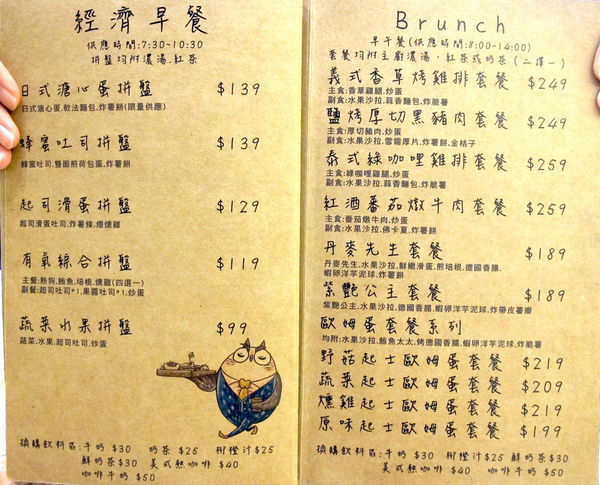 經濟早餐
供應時間:7:30-10:30
拼盤均附濃湯.紅茶
日式溏心蛋拼盤 $139
日式溏心蛋.軟法麵包.炸薯餅(限量供應)
蜂蜜吐司拼盤 $139
蜂蜜吐司.雙面煎荷包蛋.炸薯餅
起司滑蛋拼盤 $129
起司滑蛋吐司.炸薯條.燻燻雞
有氧綜合拼盤 $119
主餐:熱狗.鮪魚.培根.燻雞(四選一)
副餐:起司吐司*1.果醬吐司*1.炒蛋
蔬菜水果拼盤 $99
蔬菜.水果.起司吐司.炒蛋
換購飲料區:牛奶 $30 奶茶 $25 柳橙汁$25
鮮奶茶$30 美式熱咖啡 $40
咖啡牛奶 $50
Brunch
早午餐(供應時間:8:00-14:00)
套餐均附主廚濃湯.紅茶或奶茶(二擇一)
義式香草烤雞排套餐 $249
主食:香草雞腿.炒蛋
副食:水果沙拉.蒜香麵包.炸脆薯
鹽烤厚切黑豬肉套餐 $249
主食:厚切豬肉.炒蛋
副食:水果沙拉.雪霜厚片.炸薯餅.金桔子
泰式綠咖哩雞排套餐 $259
主食:綠咖哩雞腿.炒蛋
副食:水果沙拉.蒜香麵包.炸脆薯
紅酒番茄燉牛肉套餐 $259
主食:番茄燉牛肉.炒蛋
副食:水果沙拉.佛卡夏.炸薯餅
丹麥先生套餐 $189
丹麥先生.水果沙拉.鮮嫩滑蛋.煎培根.德國香腸.
蝦卵洋芋泥球.炸薯餅
紫艷公主套餐 $189
紫艷公主.水果沙拉.德國香腸.蝦卵洋芋泥球.炸帶皮薯瓣
歐姆蛋套餐系列
均附:水果沙拉.鮪魚太太.烤德國香腸.蝦卵洋芋泥球.炸脆薯
野菇起士歐姆蛋套餐 $219
蔬菜起士歐姆蛋套餐 $209
燻雞起士歐姆蛋套餐 $219
原味起士歐姆蛋套餐 $199
換購飲料區:牛奶 $30 柳橙汁 $25 鮮奶茶 $30
美式熱咖啡 $40 奶茶 $25
咖啡牛奶 $50